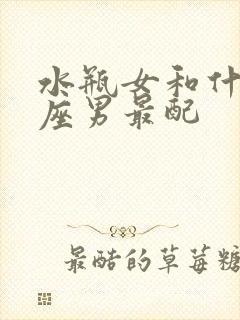 水瓶女和什
座男最配
最酷的草莓糖